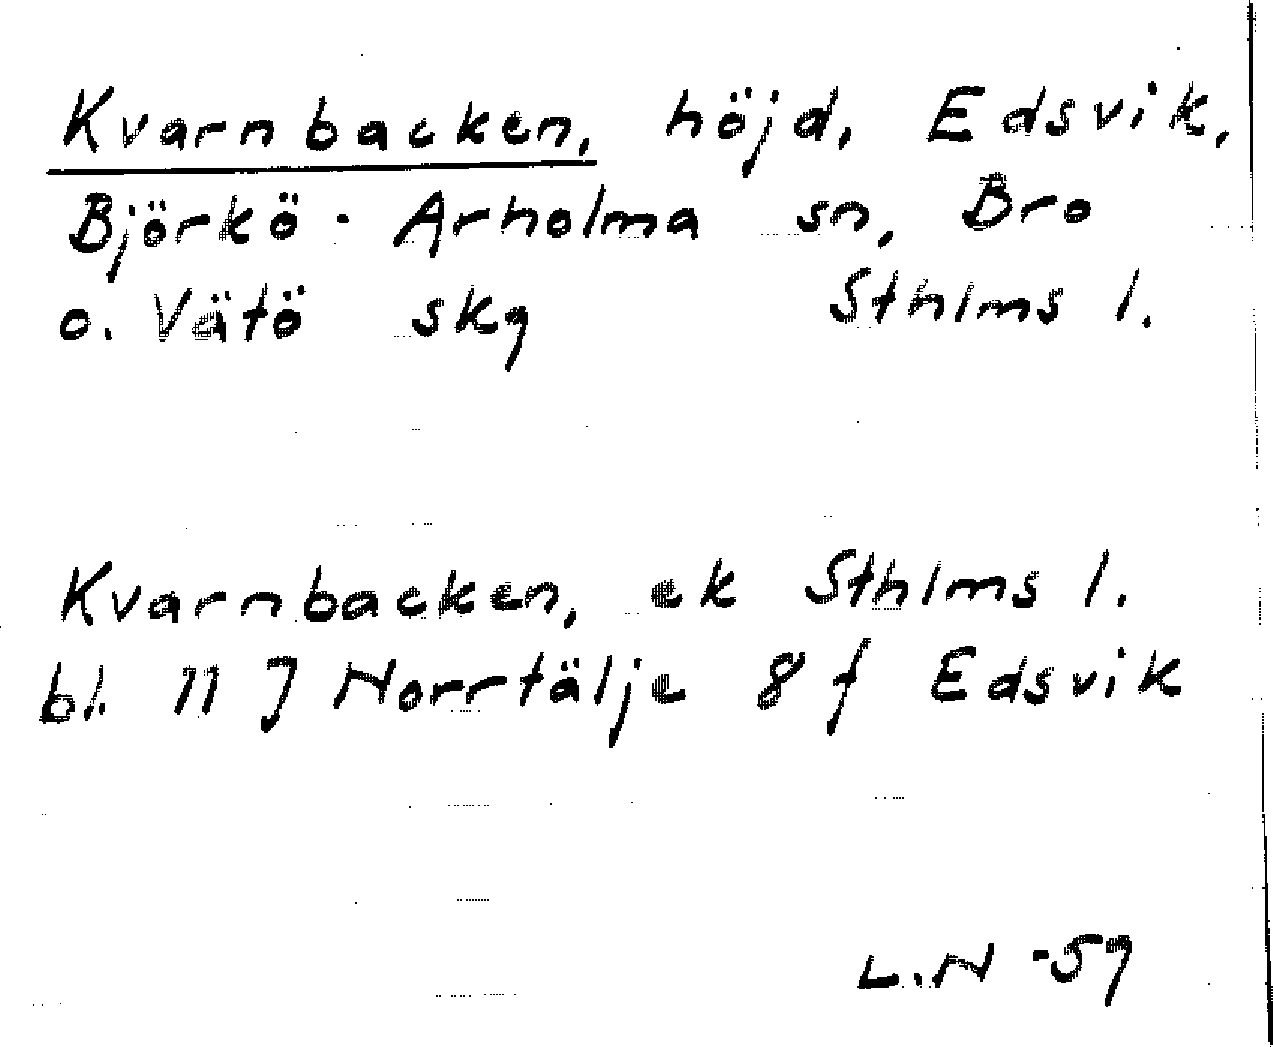 Kvarnbacken, höjd, Edsvik,
Björkö - Arholma sn, Bro
o. Vätö skg Sthlms l.
Kvarnbacken, ek Sthlms l.
bl. 11 J Norrtälje 8 f Edsvik
L.N -59